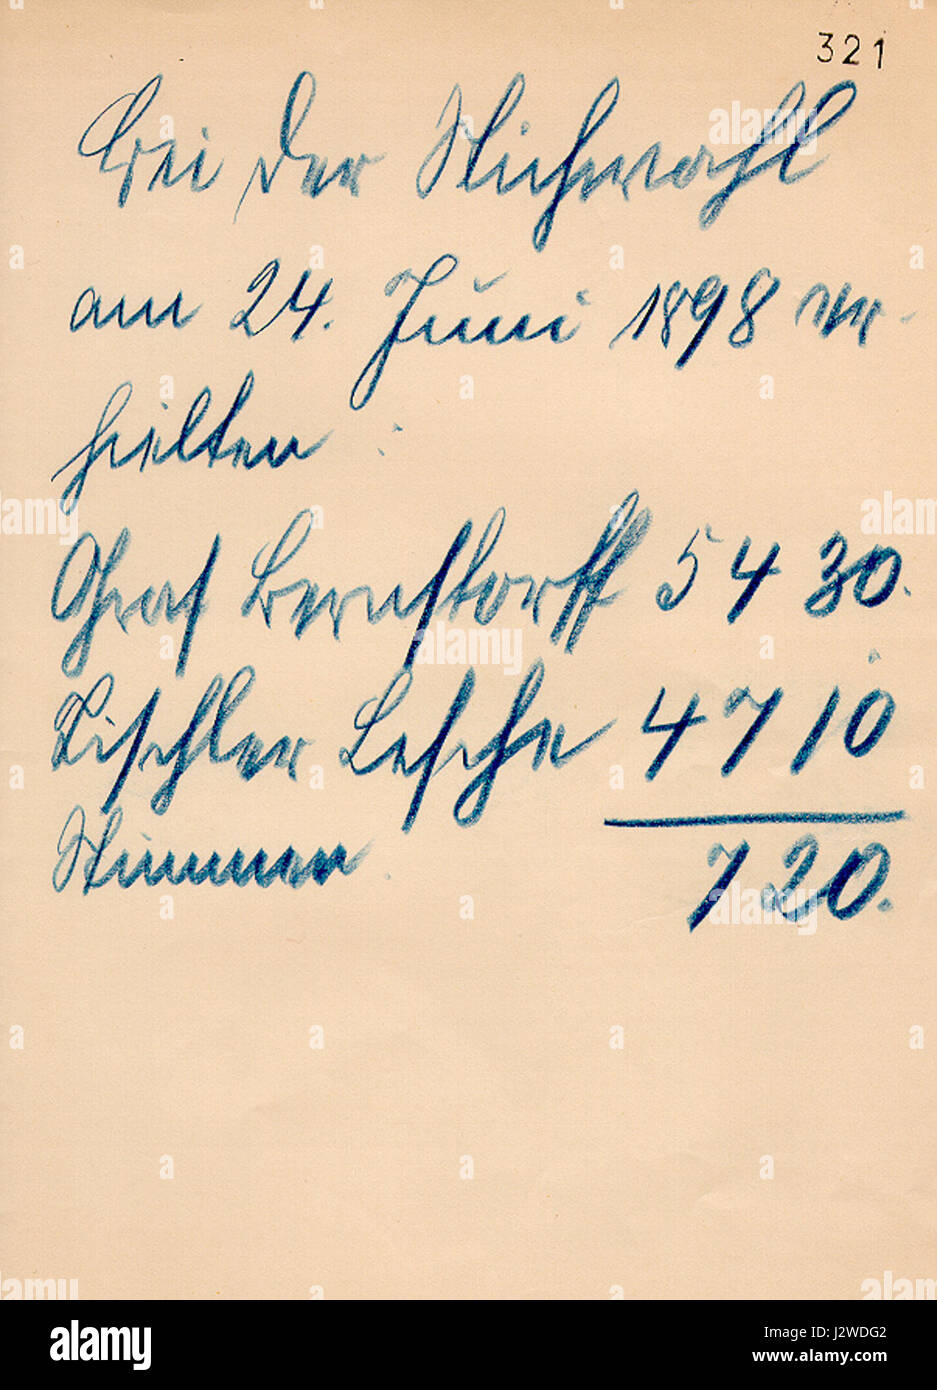 321
Bei der Stichwahl
am 24. Juni 1898 er-
hielten :
Graf Bernstorff 5430.
Tischler Lesche 4710
Stimmen. 720.
alamy
Image ID: J2WDG2
www.alamy.com